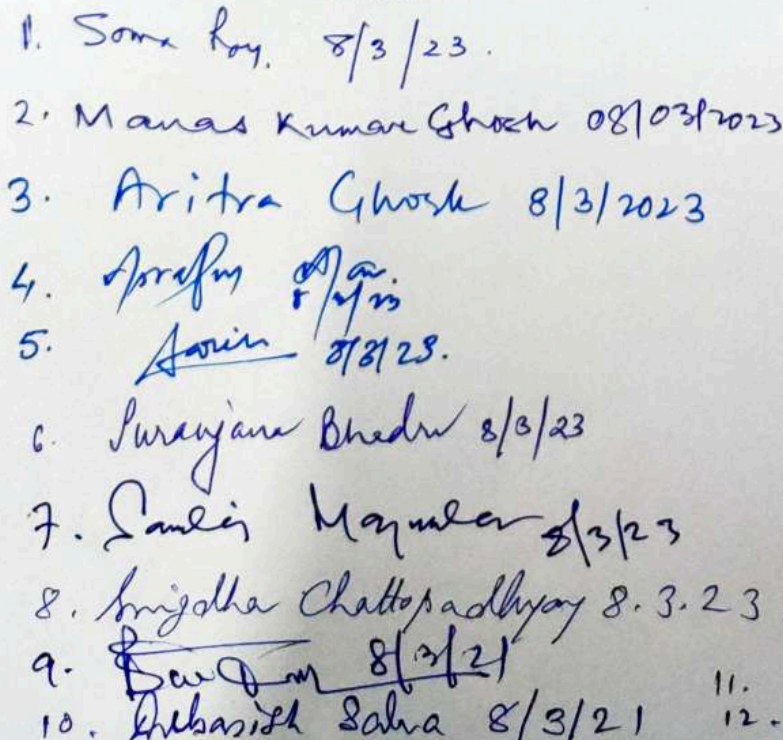 1. Soma Roy. 8/3/23.
2. Manas Kumar Ghosh 08/03/2023
3. Aritra Ghosh 8/3/2023
4.
5. 8/3/23.
6. Suranjana Bhadra 8/3/23
7. Majumder 8/3/23
8. Snigdha Chattopadhyay 8.3.23
9. 8/3/21
10. Debasish Saha 8/3/21
11.
12.